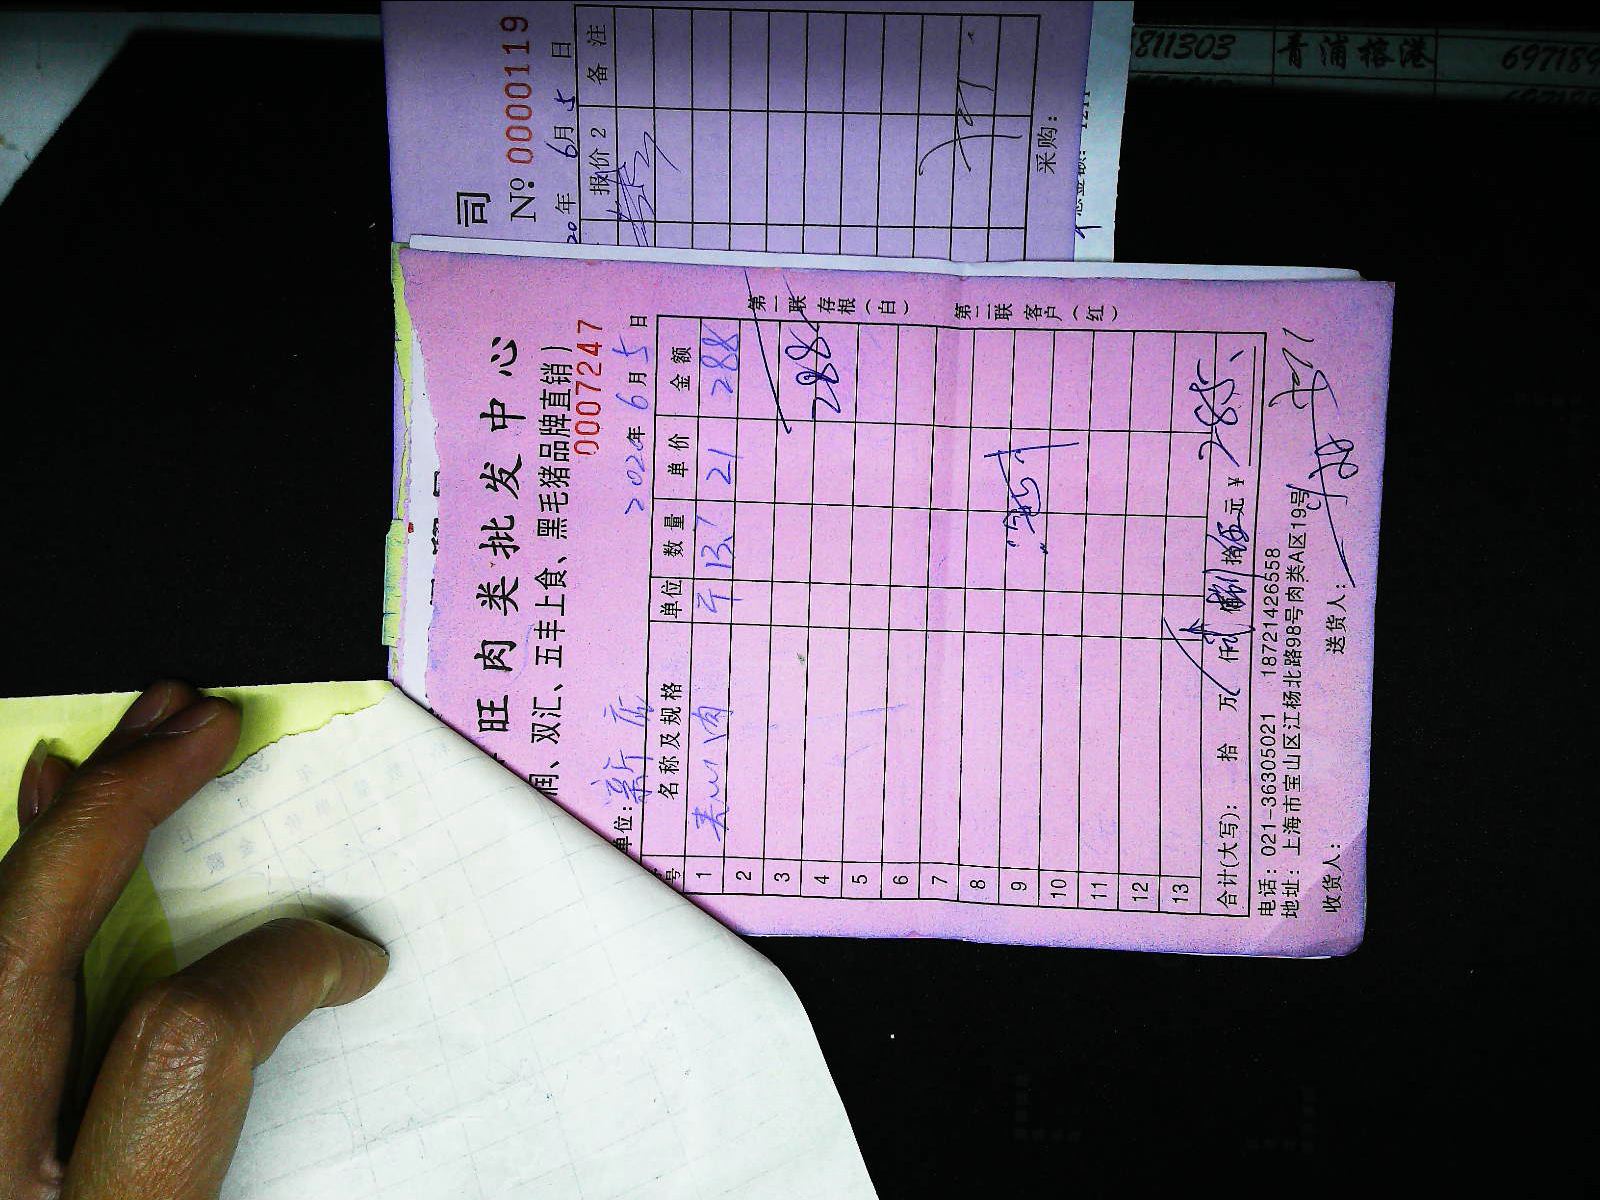 司
№ 0000119
20 年 6月 5 日
报价 2 备 注
采购：
811303 青浦榕港 697189
旺 肉 类 批 发 中 心
润、双汇、五丰上食、黑毛猪品牌直销）
0007247
单位：新店 2020年 6月 5日
号 名称及规格 单位 数量 单价 金额
1 夹心肉 斤 13.7 21 288
2
3
4 288
5
6
7
8
9
10
11
12
13
合计(大写)： 拾 万 仟 佰 捌 拾 伍 元 ￥285、
电话：021-36305021 18721426558
地址：上海市宝山区江杨北路98号肉类A区19号
收货人： 送货人：
第一联 存根（白）
第二联 客户（红）